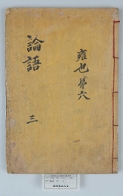 雍也第六
論語
三